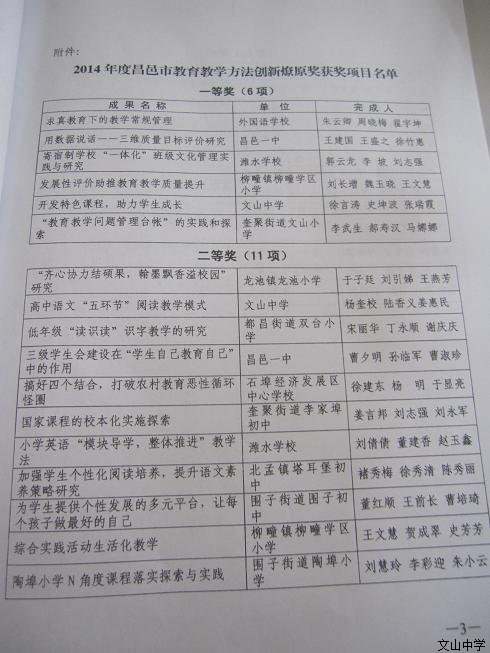 附件：
2014 年度昌邑市教育教学方法创新燎原奖获奖项目名单
一等奖（6 项）
成 果 名 称 单 位 完 成 人
求真教育下的教学常规管理 外国语学校 朱云卿 周晓梅 翟宇坤
用数据说话——三维质量目标评价研究 昌邑一中 王建国 王盛之 徐竹惠
寄宿制学校“一体化”班级文化管理实
践与研究 潍水学校 郭云龙 李 坡 刘志强
发展性评价助推教育教学质量提升 柳疃镇柳疃学区
小学 刘长增 魏玉晓 王文慧
开发特色课程，助力学生成长 文山中学 徐言涛 史坤波 张培霞
“教育教学问题管理台帐”的实践和探
索 奎聚街道文山小
学 李武生 郝寿汉 马娜娜
二等奖（11 项）
“齐心协力结硕果，翰墨飘香溢校园”
研究 龙池镇龙池小学 于子廷 刘引娣 王燕芳
高中语文“五环节”阅读教学模式 文山中学 杨奎校 陆香义姜惠民
低年级“读识读”识字教学的研究 都昌街道双台小
学 宋丽华 丁永顺 谢庆庆
三级学生会建设在“学生自己教育自己”
中的作用 昌邑一中 曹夕明 孙临军 曹淑珍
搞好四个结合，打破农村教育恶性循环
怪圈 石埠经济发展区
中心学校 徐建东 杨 明 于显亮
国家课程的校本化实施探索 奎聚街道李家埠
初中 姜言邦 刘志强 刘永军
小学英语“模块导学，整体推进”教学
法 潍水学校 刘倩倩 董建香 赵玉鑫
加强学生个性化阅读培养，提升语文素
养策略研究 北孟镇塔耳堡初
中 褚秀梅 徐秀清 陈秀丽
为学生提供个性发展的多元平台，让每
个孩子做最好的自己 围子街道围子初
中 董红顺 王前长 曹培琦
综合实践活动生活化教学 柳疃镇柳疃学区
小学 王文慧 贺成翠 史芳芳
陶埠小学 N 角度课程落实探索与实践 围子街道陶埠小
学 刘慧玲 李彩迎 朱小云
—3—
文山中学